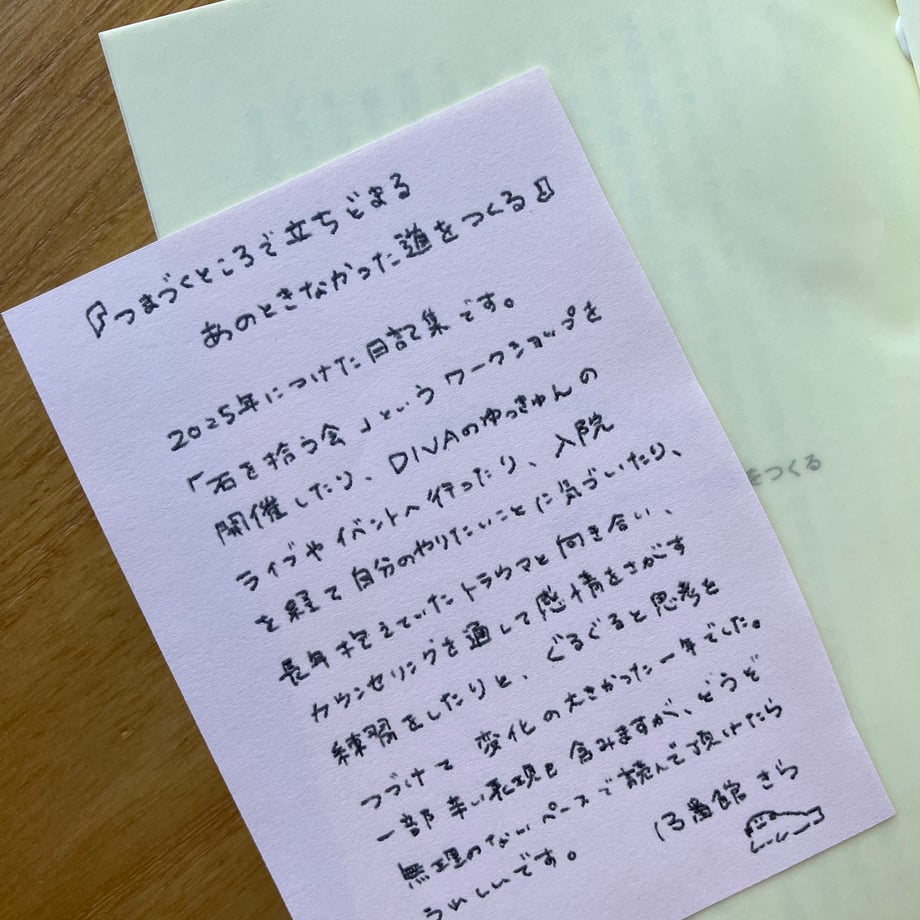 『つまづくところで立ちどまる
あのときなかった道をつくる』
2025年につけた日記集です。
「石を拾う会」というワークショップを
開催したり、DIVAのゆっきゅんの
ライブやイベントへ行ったり、入院
を経て自分のやりたいことに気づいたり、
長年抱えていたトラウマと向き合い、
カウンセリングを通して感情をさがす
練習をしたりと、ぐるぐると思考を
つづけて変化の大きかった一年でした。
一部辛い表現も含みますが、どうぞ
無理のないペースで読んで頂けたら
うれしいです。
さら
をつくる